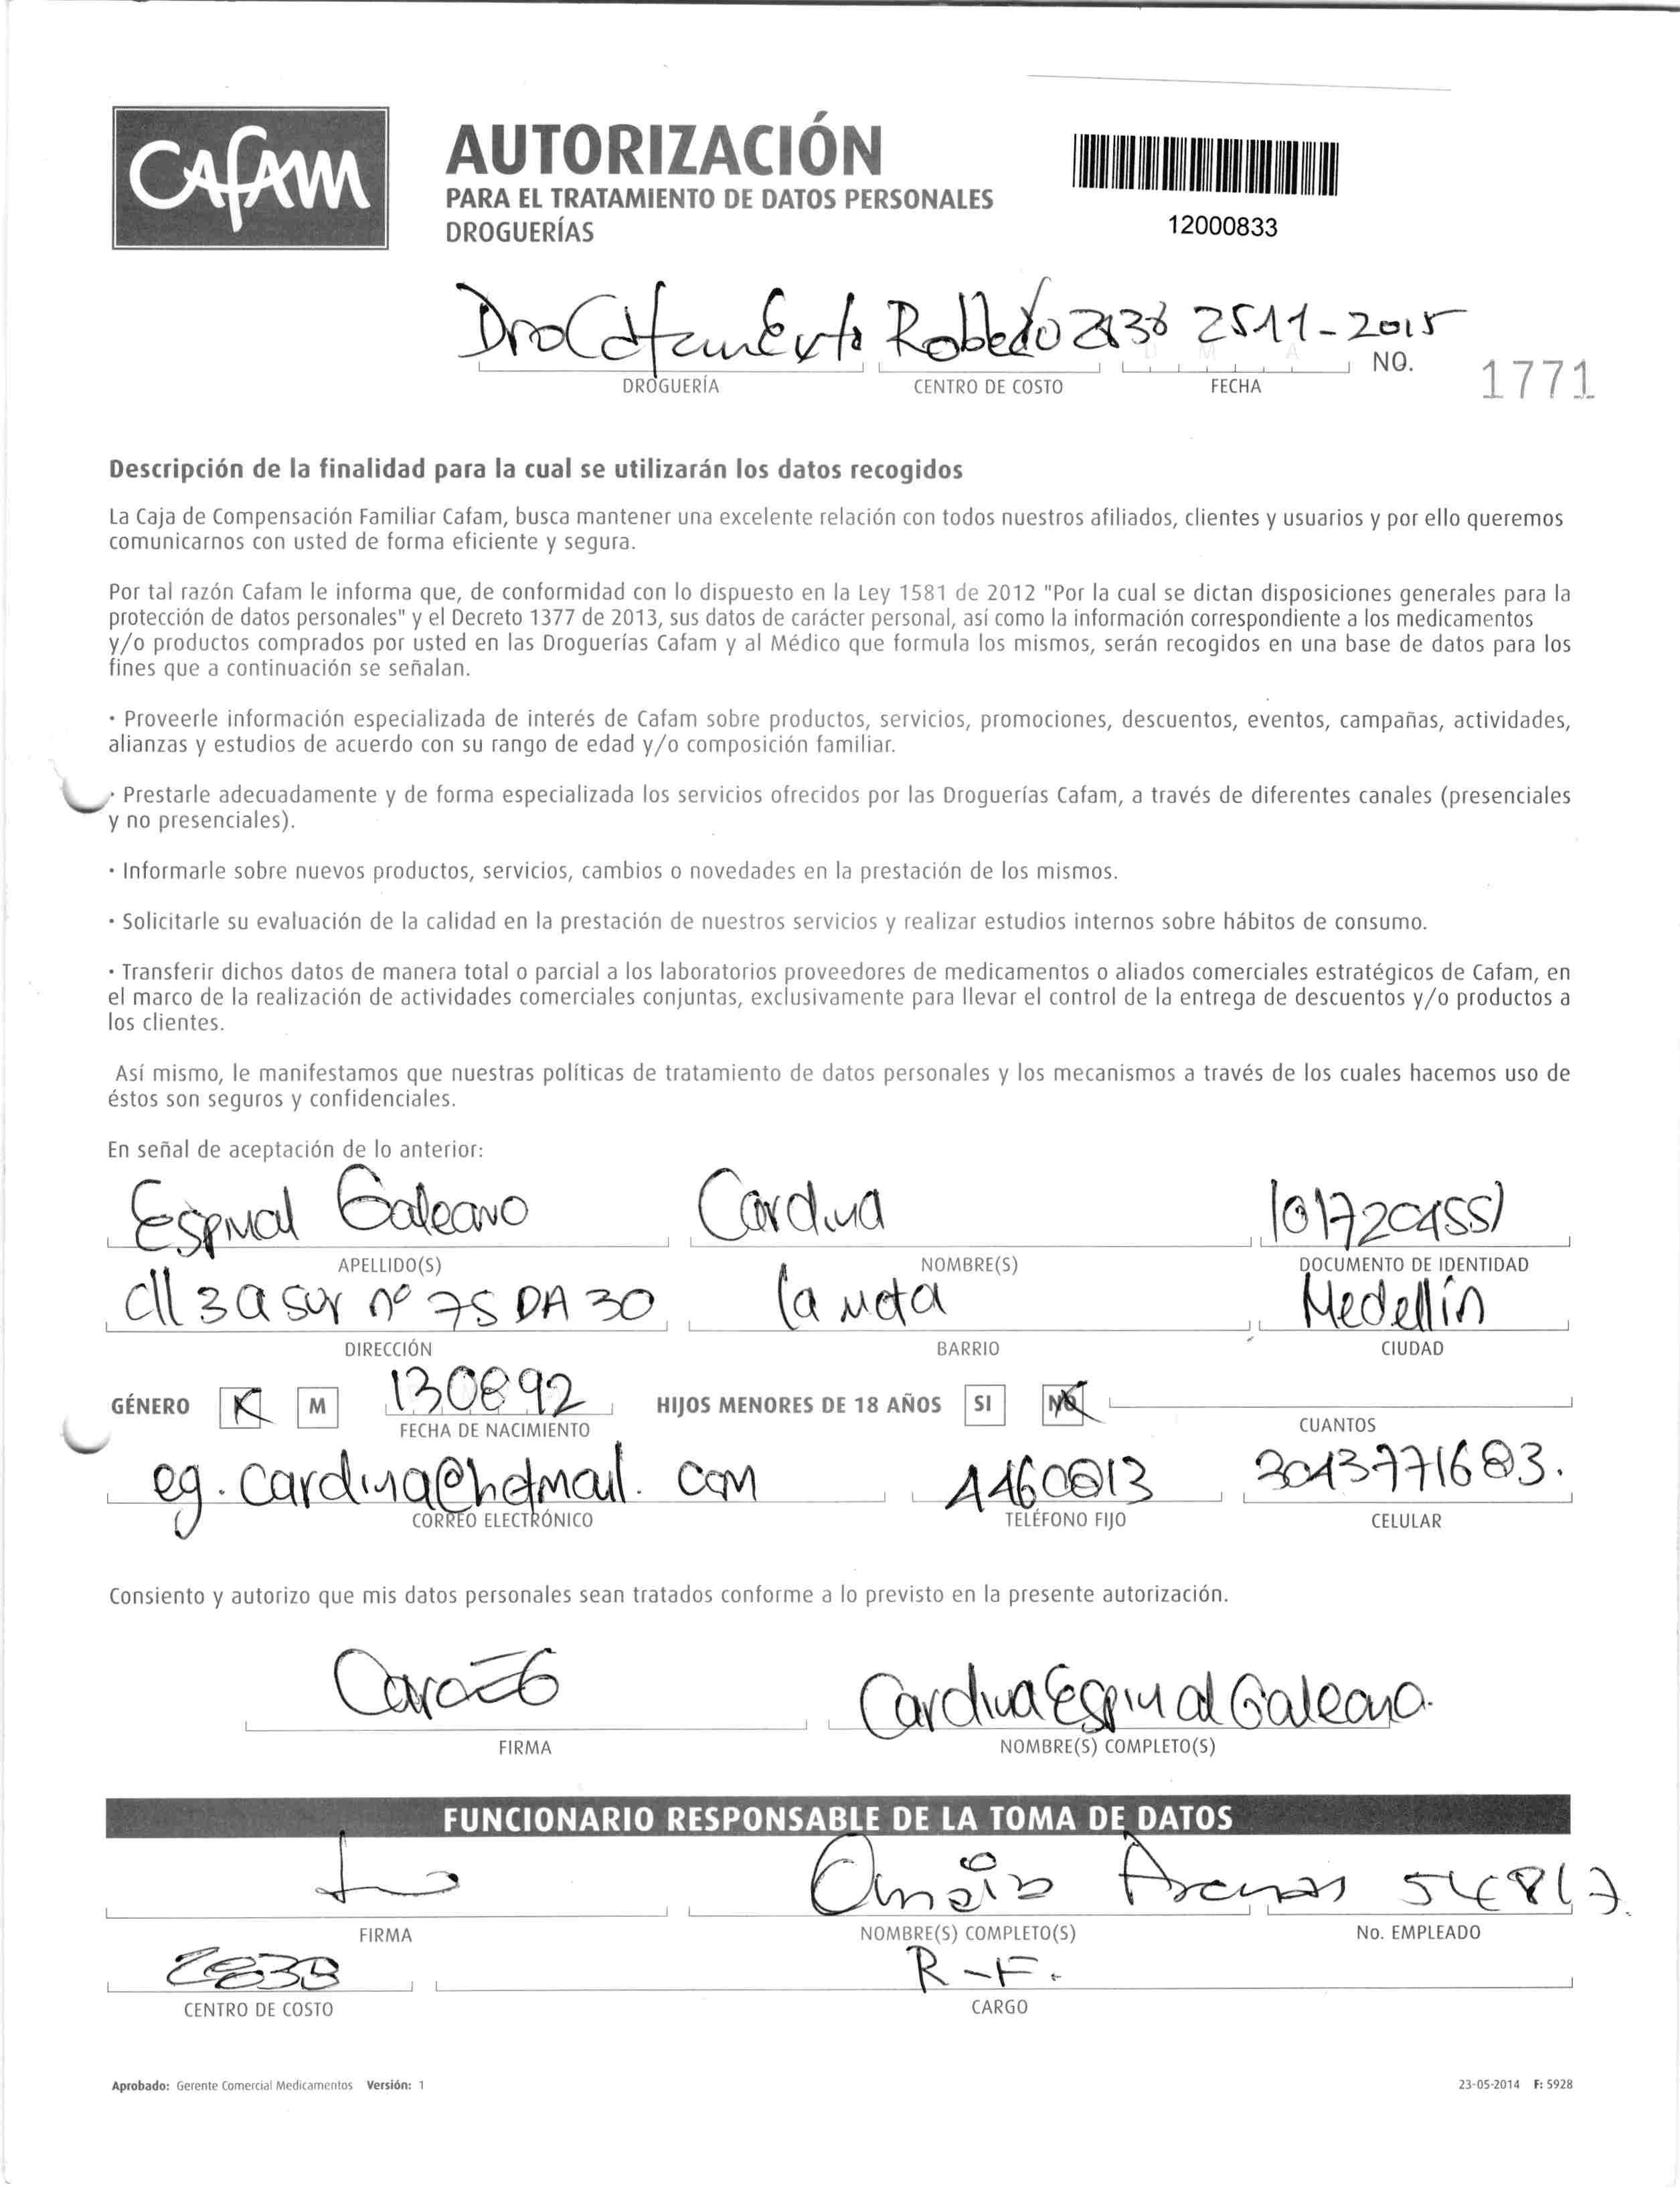 CAFAM
AUTORIZACIÓN
PARA EL TRATAMIENTO DE DATOS PERSONALES
DROGUERÍAS
12000833
Robledo 2511-2015
DROGUERÍA CENTRO DE COSTO FECHA NO. 1771
Descripción de la finalidad para la cual se utilizarán los datos recogidos
La Caja de Compensación Familiar Cafam, busca mantener una excelente relación con todos nuestros afiliados, clientes y usuarios y por ello queremos
comunicarnos con usted de forma eficiente y segura.
Por tal razón Cafam le informa que, de conformidad con lo dispuesto en la Ley 1581 de 2012 "Por la cual se dictan disposiciones generales para la
protección de datos personales" y el Decreto 1377 de 2013, sus datos de carácter personal, así como la información correspondiente a los medicamentos
y/o productos comprados por usted en las Droguerías Cafam y al Médico que formula los mismos, serán recogidos en una base de datos para los
fines que a continuación se señalan.
· Proveerle información especializada de interés de Cafam sobre productos, servicios, promociones, descuentos, eventos, campañas, actividades,
alianzas y estudios de acuerdo con su rango de edad y/o composición familiar.
· Prestarle adecuadamente y de forma especializada los servicios ofrecidos por las Droguerías Cafam, a través de diferentes canales (presenciales
y no presenciales).
· Informarle sobre nuevos productos, servicios, cambios o novedades en la prestación de los mismos.
· Solicitarle su evaluación de la calidad en la prestación de nuestros servicios y realizar estudios internos sobre hábitos de consumo.
· Transferir dichos datos de manera total o parcial a los laboratorios proveedores de medicamentos o aliados comerciales estratégicos de Cafam, en
el marco de la realización de actividades comerciales conjuntas, exclusivamente para llevar el control de la entrega de descuentos y/o productos a
los clientes.
Así mismo, le manifestamos que nuestras políticas de tratamiento de datos personales y los mecanismos a través de los cuales hacemos uso de
éstos son seguros y confidenciales.
En señal de aceptación de lo anterior:
Espinal Galeano Carolina 1017204551
APELLIDO(S) NOMBRE(S) DOCUMENTO DE IDENTIDAD
cll 3a sur nº 75 DA 30 la mota Medellín
DIRECCIÓN BARRIO CIUDAD
GÉNERO M 130892 HIJOS MENORES DE 18 AÑOS SI NO
FECHA DE NACIMIENTO CUANTOS
eg.carolina@hotmail.com 3013771683.
CORREO ELECTRÓNICO TELÉFONO FIJO CELULAR
Consiento y autorizo que mis datos personales sean tratados conforme a lo previsto en la presente autorización.
Carolina Espinal Galeano.
FIRMA NOMBRE(S) COMPLETO(S)
FUNCIONARIO RESPONSABLE DE LA TOMA DE DATOS
Arenas
FIRMA NOMBRE(S) COMPLETO(S) No. EMPLEADO
R-F.
CENTRO DE COSTO CARGO
Aprobado: Gerente Comercial Medicamentos Versión: 1 23-05-2014 F: 5928